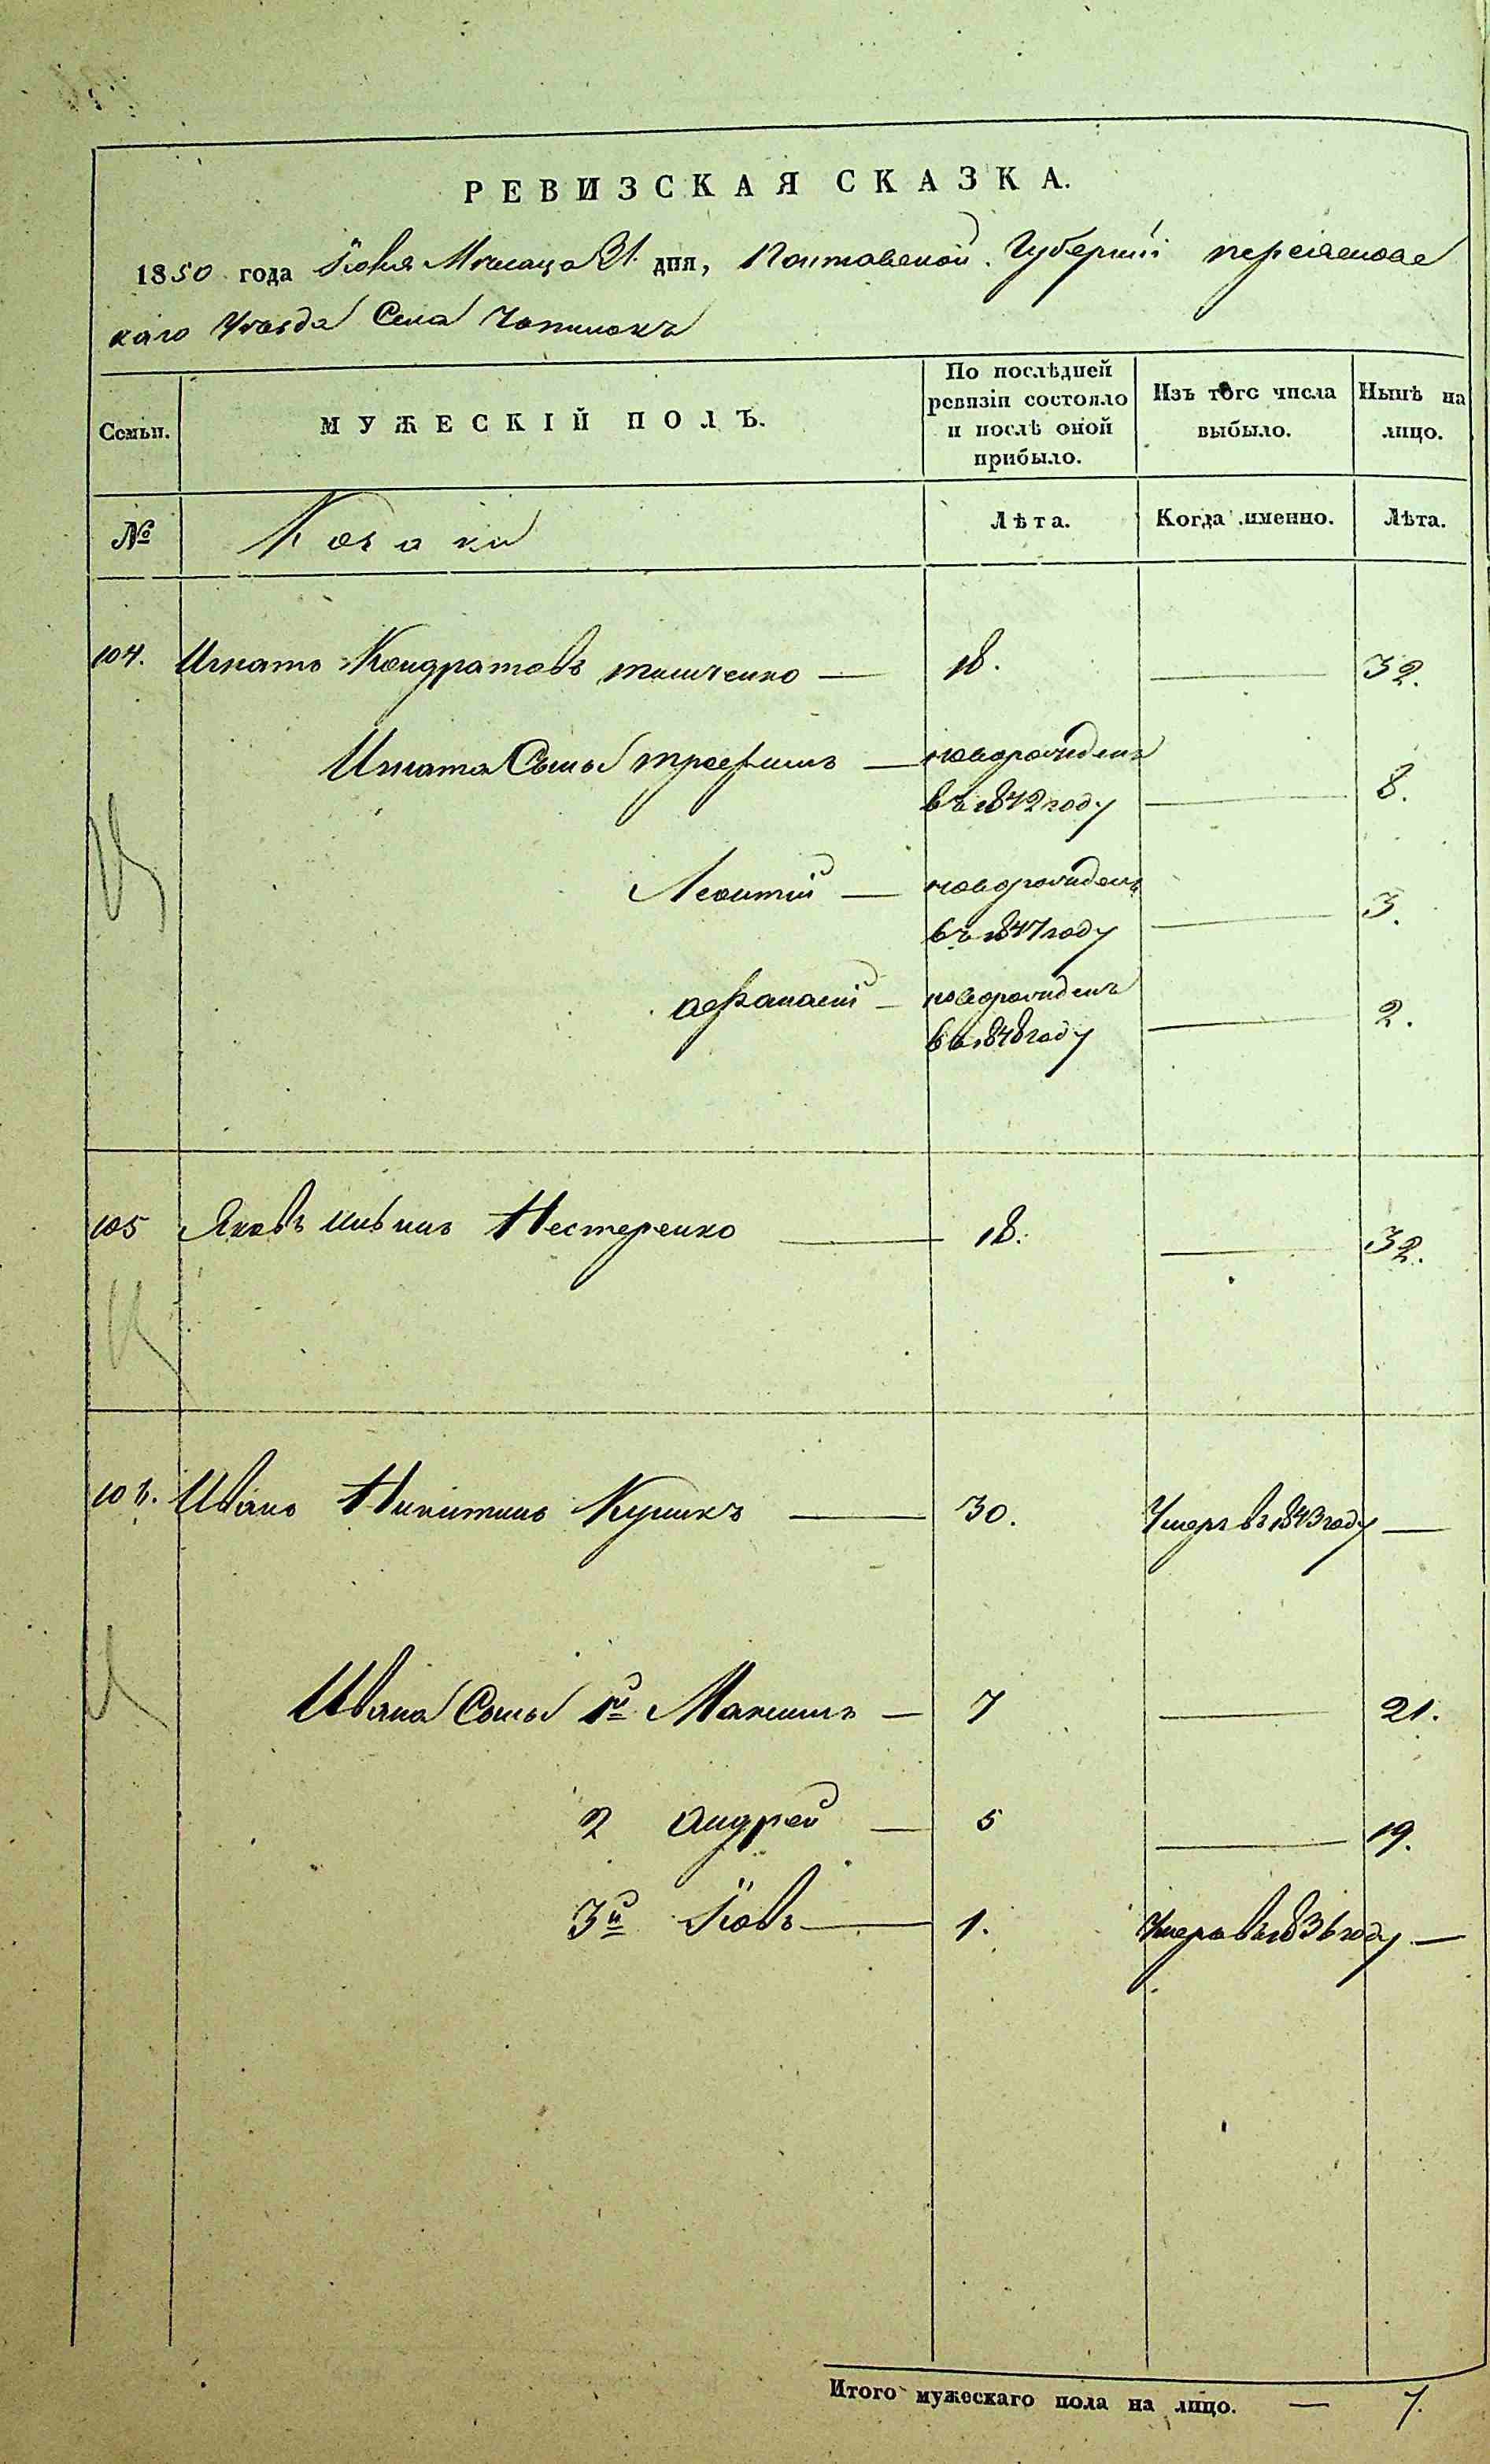 РЕВИЗСКАЯ СКАЗКА.
1850 года Іюня Мѣсяца 21 дня, Полтавской Губерніи переяславс
каго Уѣзда Села Чопилокъ
Семьи.
МУЖЕСКІЙ ПОЛЪ.
По послѣдней ревизіи состояло и послѣ оной прибыло.
Изъ того числа выбыло.
Нынѣ на лицо.
№
Козаки
Лѣта.
Когда именно.
Лѣта.
104. Игнатъ Кондратовъ тимченко — 18. — 32.
Игната Сыны трофимъ — новорожденъ
въ 1842 году — 8.
Леонтій — новорожденъ
въ 1847 году — 3.
афанасій — новорожденъ
въ 1848 году — 2.
105 Яковъ Нестеренко — 18. — 32.
106. Иванъ Никитинъ Куликъ — 30. Умеръ въ 1843 году —
Ивана Сыны 1й Максимъ — 7 — 21.
2 андрей — 5 — 19.
3й Іовъ — 1. Умеръ въ 1836 году —
Итого мужескаго пола на лицо. — 7.